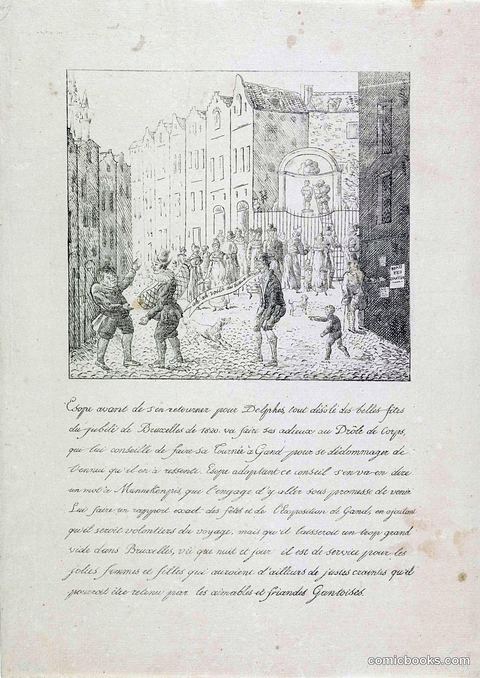 Esope avant de s'en retourner pour Delphes, tout désolé des belles fêtes
du jubilé de Bruxelles de 1820. va faire ses adieux au Drôle de Corps,
qui lui conseille de faire sa Tournée à Gand pour se dédommager de
l'ennui qu'il en a ressenti. Esope adoptant ce conseil s'en va en dire
un mot à Mannekenpis, que l'engage d'y aller sous promesse de venir
Lui faire un rapport exact des fêtes et de l'Exposition de Gand, en ajoutant
qu'il seroit volontiers du voyage, mais qu'il laisseroit un trop grand
vide dans Bruxelles, vû que nuit et jour il est de service pour les
jolies femmes et filles qui auroient d'ailleurs de justes craintes qu'il
pourroit être retenu par les aimables et friandes Gantoises.
comicbooks.com